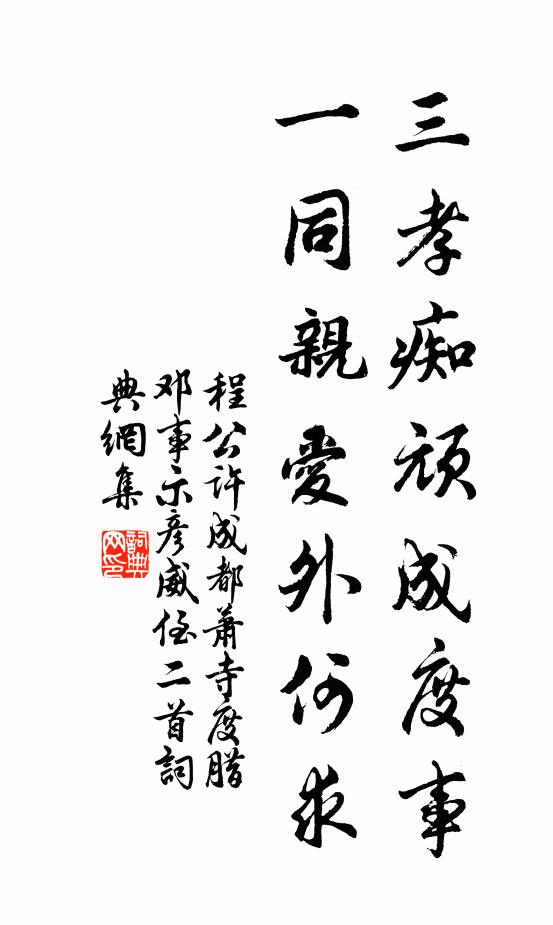 三孝痴頑成度事
一同親愛外何求
程公許成都蕭寺度腊
邓事示彦威侄二首詞
典網集
詞典网印